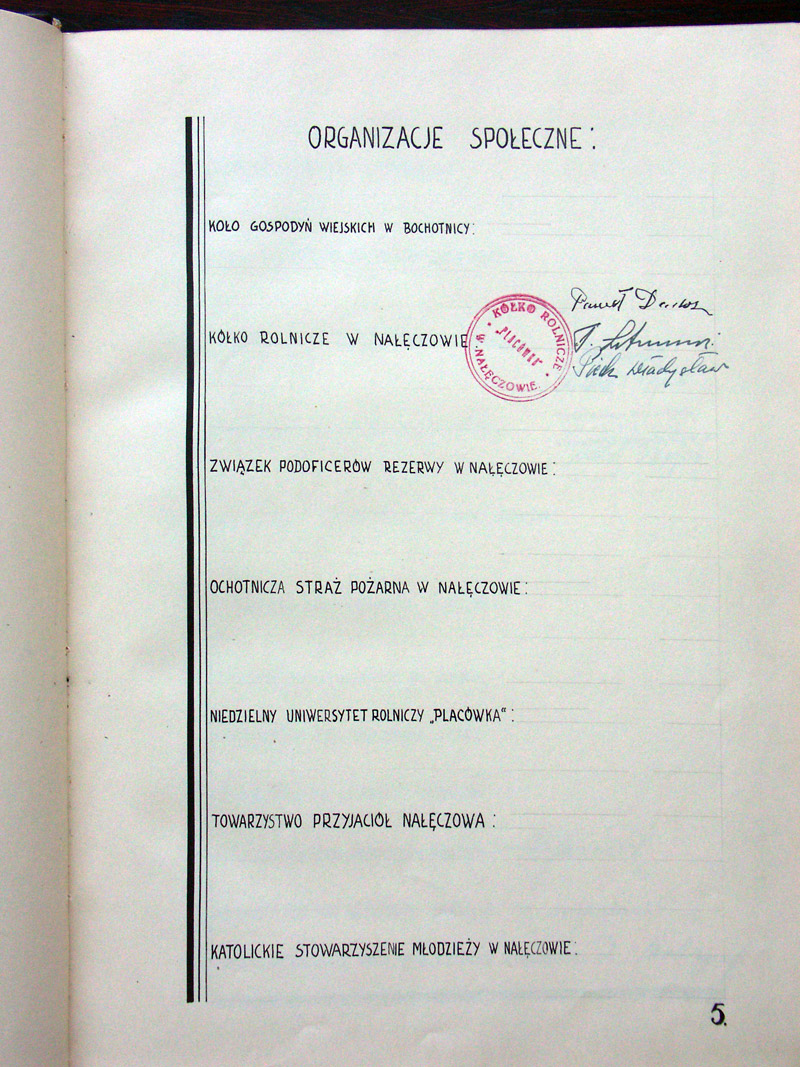 ORGANIZACJE SPOŁECZNE:
KOŁO GOSPODYŃ WIEJSKICH W BOCHOTNICY:
KÓŁKO ROLNICZE W NAŁĘCZOWIE
KÓŁKO ROLNICZE
"PLACÓWKA"
W NAŁĘCZOWIE.
Paweł
Władysław
ZWIĄZEK PODOFICERÓW REZERWY W NAŁĘCZOWIE:
OCHOTNICZA STRAŻ POŻARNA W NAŁĘCZOWIE:
NIEDZIELNY UNIWERSYTET ROLNICZY „PLACÓWKA":
TOWARZYSTWO PRZYJACIÓŁ NAŁĘCZOWA:
KATOLICKIE STOWARZYSZENIE MŁODZIEŻY W NAŁĘCZOWIE:
5.